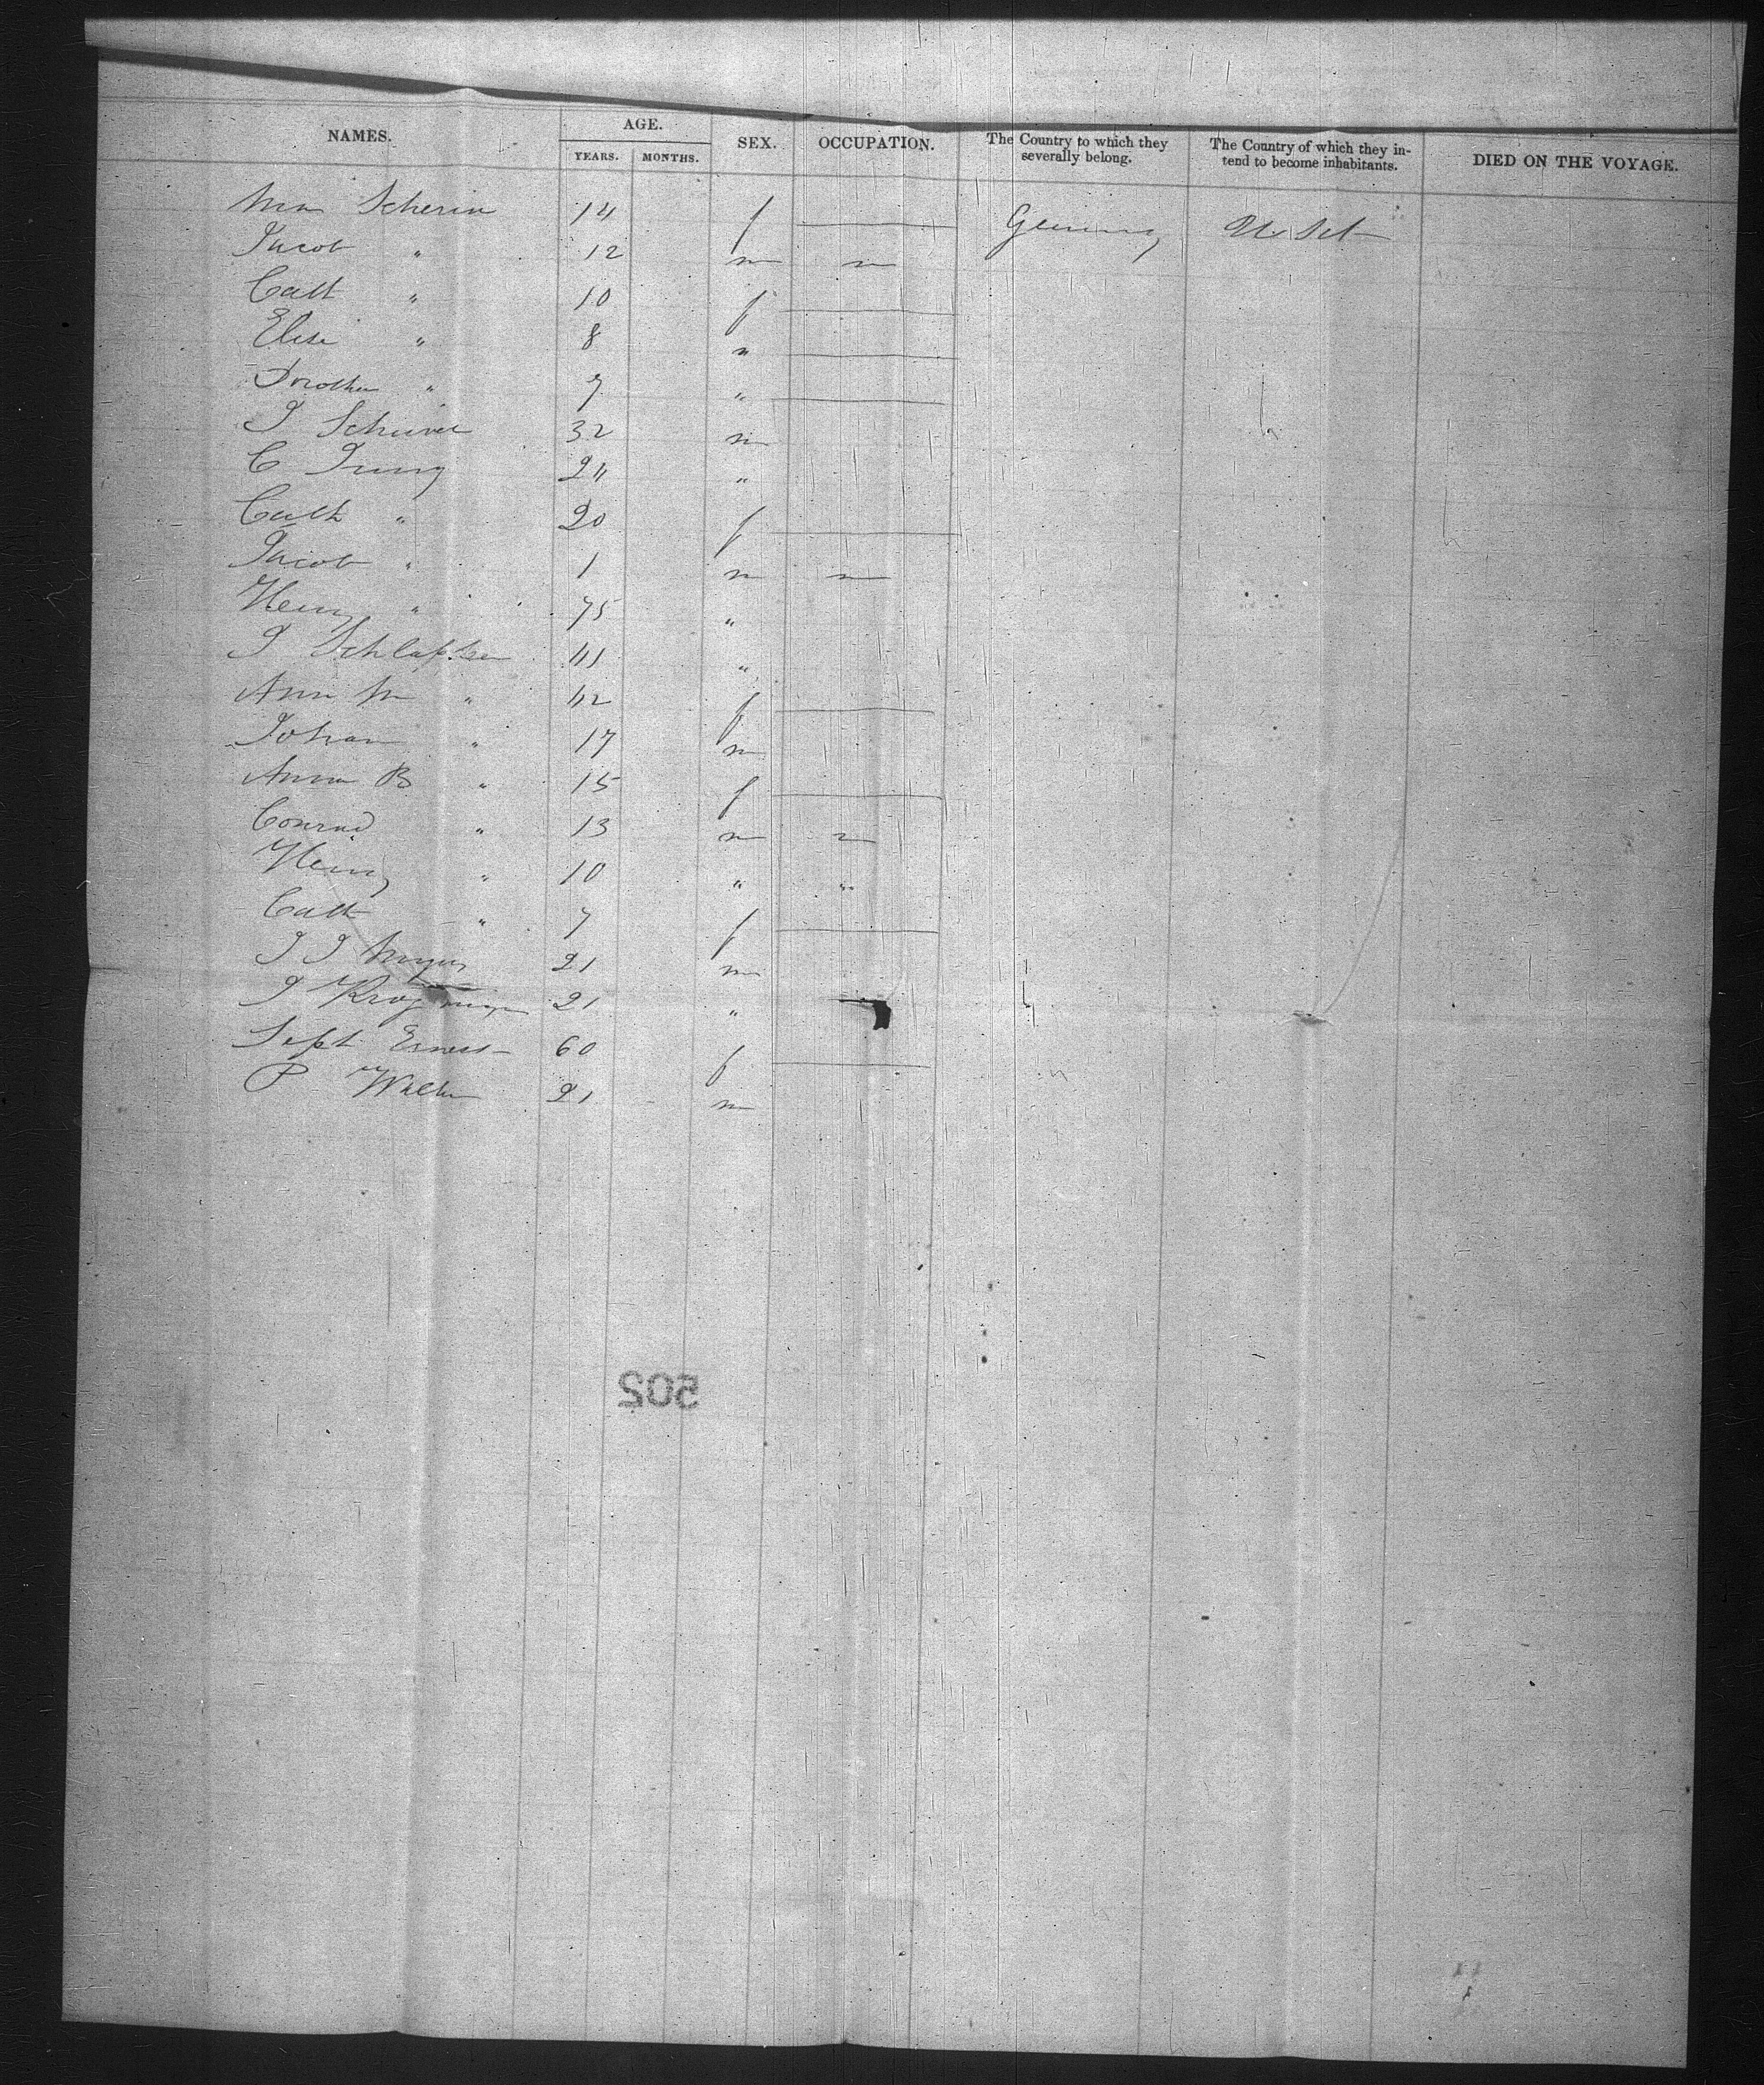 NAMES. AGE. SEX. OCCUPATION. The Country to which they severally belong. The Country of which they intend to become inhabitants. DIED ON THE VOYAGE.
YEARS. MONTHS.
14 f Germany U St
Jacob " 12 m
Cath " 10 f
Elise " 8 "
Dorothea " 7 "
J 32 m
C Jung 24 "
Cath " 20 f
Jacob " 1 m
Henry " 75 "
J 41 "
Ann M " 42 f
Johan " 17 m
Anna B " 15 f
Conrad " 13 m
Henry " 10 " "
Cath " 7 f
J J 21 m
J 21 "
Sept Ernest 60 f
P 21 m
502